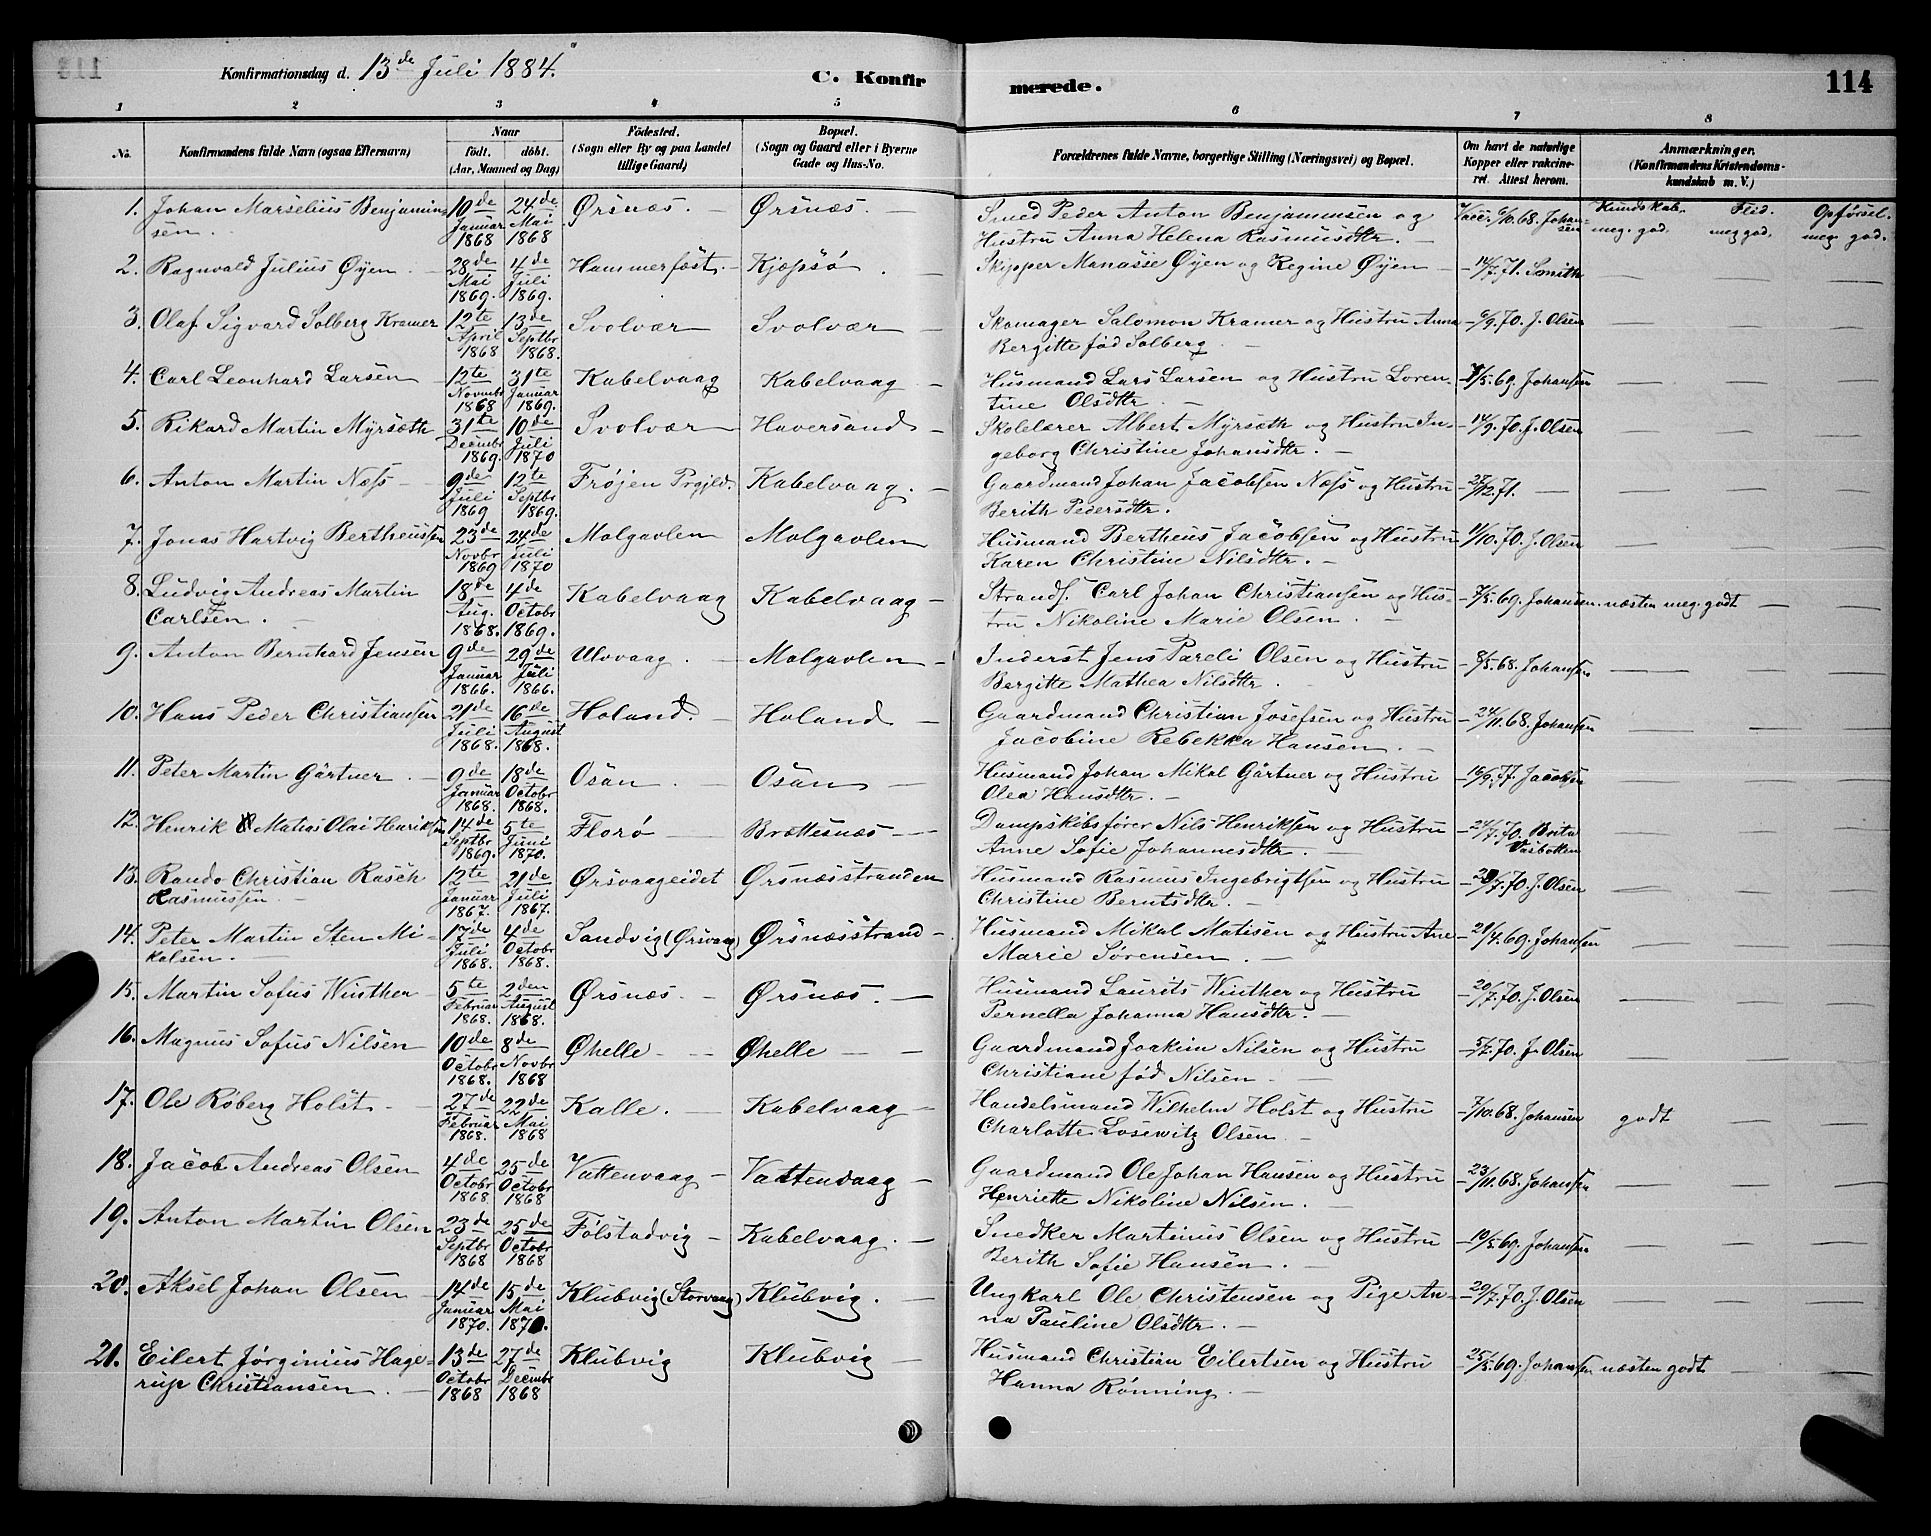 Konfirmationsdag d. 13de Juli 1884.
C. Konfir
merede.
114
1 2 3 4 5 6 7 8
No.
Konfirmandens fulde Navn (ogsaa Efternavn)
Naar
födt. döbt.
(Aar, Maaned og Dag)
Födested.
(Sogn eller By og paa Landet
tillige Gaard)
Bopæl.
(Sogn og Gaard eller i Byerne
Gade og Hus-No.
Forældrenes fulde Navne, borgerlige Stilling (Næringsvei) og Bopæl.
Om havt de naturlige
Kopper eller vakcine-
ret. Attest herom.
Anmærkninger.
(Konfirmandens Kristendoms-
kundskab m. V.)
Kundskab. Flid. Opførsel.
1. Johan Marselius Benjamin- 10de 24de Ørsnæs. — Ørsnæs. — Smed Peder Anton Benjaminsen og Vacc. 6/10.68. Johan- meg. god. meg god. meg. god.
sen. Januar Mai Hustru Anna Helena Rasmusdtr. — sen
1868 1868
2. Ragnvald Julius Øyen — 28de 4de Hammerfest. — Kjæpsø. — Skipper Manasse Øyen og Regine Øyen — 14/7.71. Smith — — —
Mai Juli
1869. 1869.
3. Olaf Sigvard Solberg Kramer 12te 13de Svolvær Svolvær — Skomager Salomon Kramer og Hustru Anna — 6/9.70. J. Olsen — — —
April Septbr Bergitte fød Solberg. —
1868 1868.
4. Carl Leonhard Larsen — 12te 31te Kabelvaag Kabelvaag. — Husmand Lars Larsen og Hustru Loren- /5.69. Johansen — — —
Novmbr Januar tine Olsdtr. —
1868 1869.
5. Rikard Martin Myrsæth 31te 10de Svolvær Haversand — Skolelærer Albert Myrsæth og Hustru In- — 14/9.70. J. Olsen — — —
Decembr Juli geborg Christine Johansdtr. —
1869. 1870
6. Anton Martin Næss — 9de 12te Frøjen Prgjld. Kabelvaag. — Gaardmand Johan Jacobsen Næss og Hustru — 27/12.71. — — — —
Juli Septbr Berith Pedersdtr.
1869 1869.
7. Jonas Hartvig Bertheussen 23de 24de Molgavlen Molgavlen Husmand Bertheus Jacobsen og Hustru 11/10.70. J. Olsen — — —
Novbr Juli Karen Christine Nilsdtr. —
1869 1870
8. Ludvig Andreas Martin 18de 4de Kabelvaag Kabelvaag — Strands. Carl Johan Christiansen og Hus- — 7/5.69. Johansen. næsten meg. godt — —
Carlsen. — Aug. Octobr tru Nikoline Marie Olsen. —
1868. 1869.
9. Anton Bernhard Jensen 9de 29de Ulvaag. — Molgavlen — Inderst Jens Pareli Olsen og Hustru — 8/5.68. Johansen — — —
Januar Juli Bergitte Mathea Nilsdtr.
1866. 1866.
10. Hans Peder Christiansen 21de 16de Holand. — Holand — Gaardmand Christian Josefsen og Hustru — 24/11.68. Johansen — — —
Juli August Jacobine Rebekka Hansen. —
1868. 1868.
11. Peter Martin Gärtner. — 9de 18de Osan. — Osan — Husmand Johan Mikal Gärtner og Hustru — 16/9.77. Jacobsen — — —
Januar Octobr Olea Hansdtr. —
1868. 1868.
12. Henrik Matias Olai Henriksen 14de 5te Florø — Brættesnæs — Dampskibsfører Nils Henriksen og Hustru — 24/7.70. Brita — — —
Septbr Juni Anne Sofie Johannesdtr. — Vasbotten
1869. 1870.
13. Rando Christian Rasch 12te 21de Ørsvaageidet Ørsnæsstranden Husmand Rasmus Ingebrigtsen og Hustru — /7.70. J. Olsen — — —
Rasmussen. — Januar Juli Christine Berntsdtr. —
1867. 1867.
14. Peter Martin Sten Mi- 17de 4de Sandvig (Ørsvaag) Ørsnæsstrand — Husmand Mikal Matisen og Hustru Ane — 21/4.69. Johansen — — —
kalsen. — Juli Octobr Marie Sørensen. —
1868. 1868.
15. Martin Sofus Winther 5te 2den Ørsnæs. — Ørsnæs. — Husmand Laurits Winther og Hustru — 20/7.70. J. Olsen — — —
Februar August Pernella Johanna Hansdtr. —
1868. 1868.
16. Magnus Sofus Nilsen — 10de 8de Øhelle — Øhelle — Gaardmand Joakim Nilsen og Hustru — 5/7.70. J. Olsen — — —
Octobr Novbr Christiane fød Nilsen. —
1868. 1868
17. Ole Røberg Holst. — 27de 22de Kalle. — Kabelvaag — Handelsmand Wilhelm Holst og Hustru — 7/10.68. Johansen godt — —
Februar Mai Charlotte Losewitz Olsen. —
1868. 1868
18. Jacob Andreas Olsen 4de 25de Vattenvaag — Vattenvaag — Gaardmand Ole Johan Hansen og Hustru — 23/11.68. Johansen — — —
Octobr Octobr Henriette Nikoline Nilsen. —
1868 1868
19. Anton Martin Olsen 23de 25de Følstadvig — Kabelvaag. — Snedker Martinus Olsen og Hustru — 10/5.69. Johansen — — —
Septbr Octobr Berith Sofie Hansen. —
1868 1868
20. Aksel Johan Olsen — 14de 15de Klubvig (Storvaag) Klubvig. — Ungkarl Ole Christensen og Pige An- — 20/7.70. J. Olsen — — —
Januar Mai na Pauline Olsdtr. —
1870. 1870.
21. Eilert Jørginius Hage- 13de 27de Klubvig Klubvig — Husmand Christian Eilertsen og Hustru — 25/5.69. Johansen næsten godt — —
rup Christiansen. — Octobr Decmbr Hanna Rønning. —
1868 1868